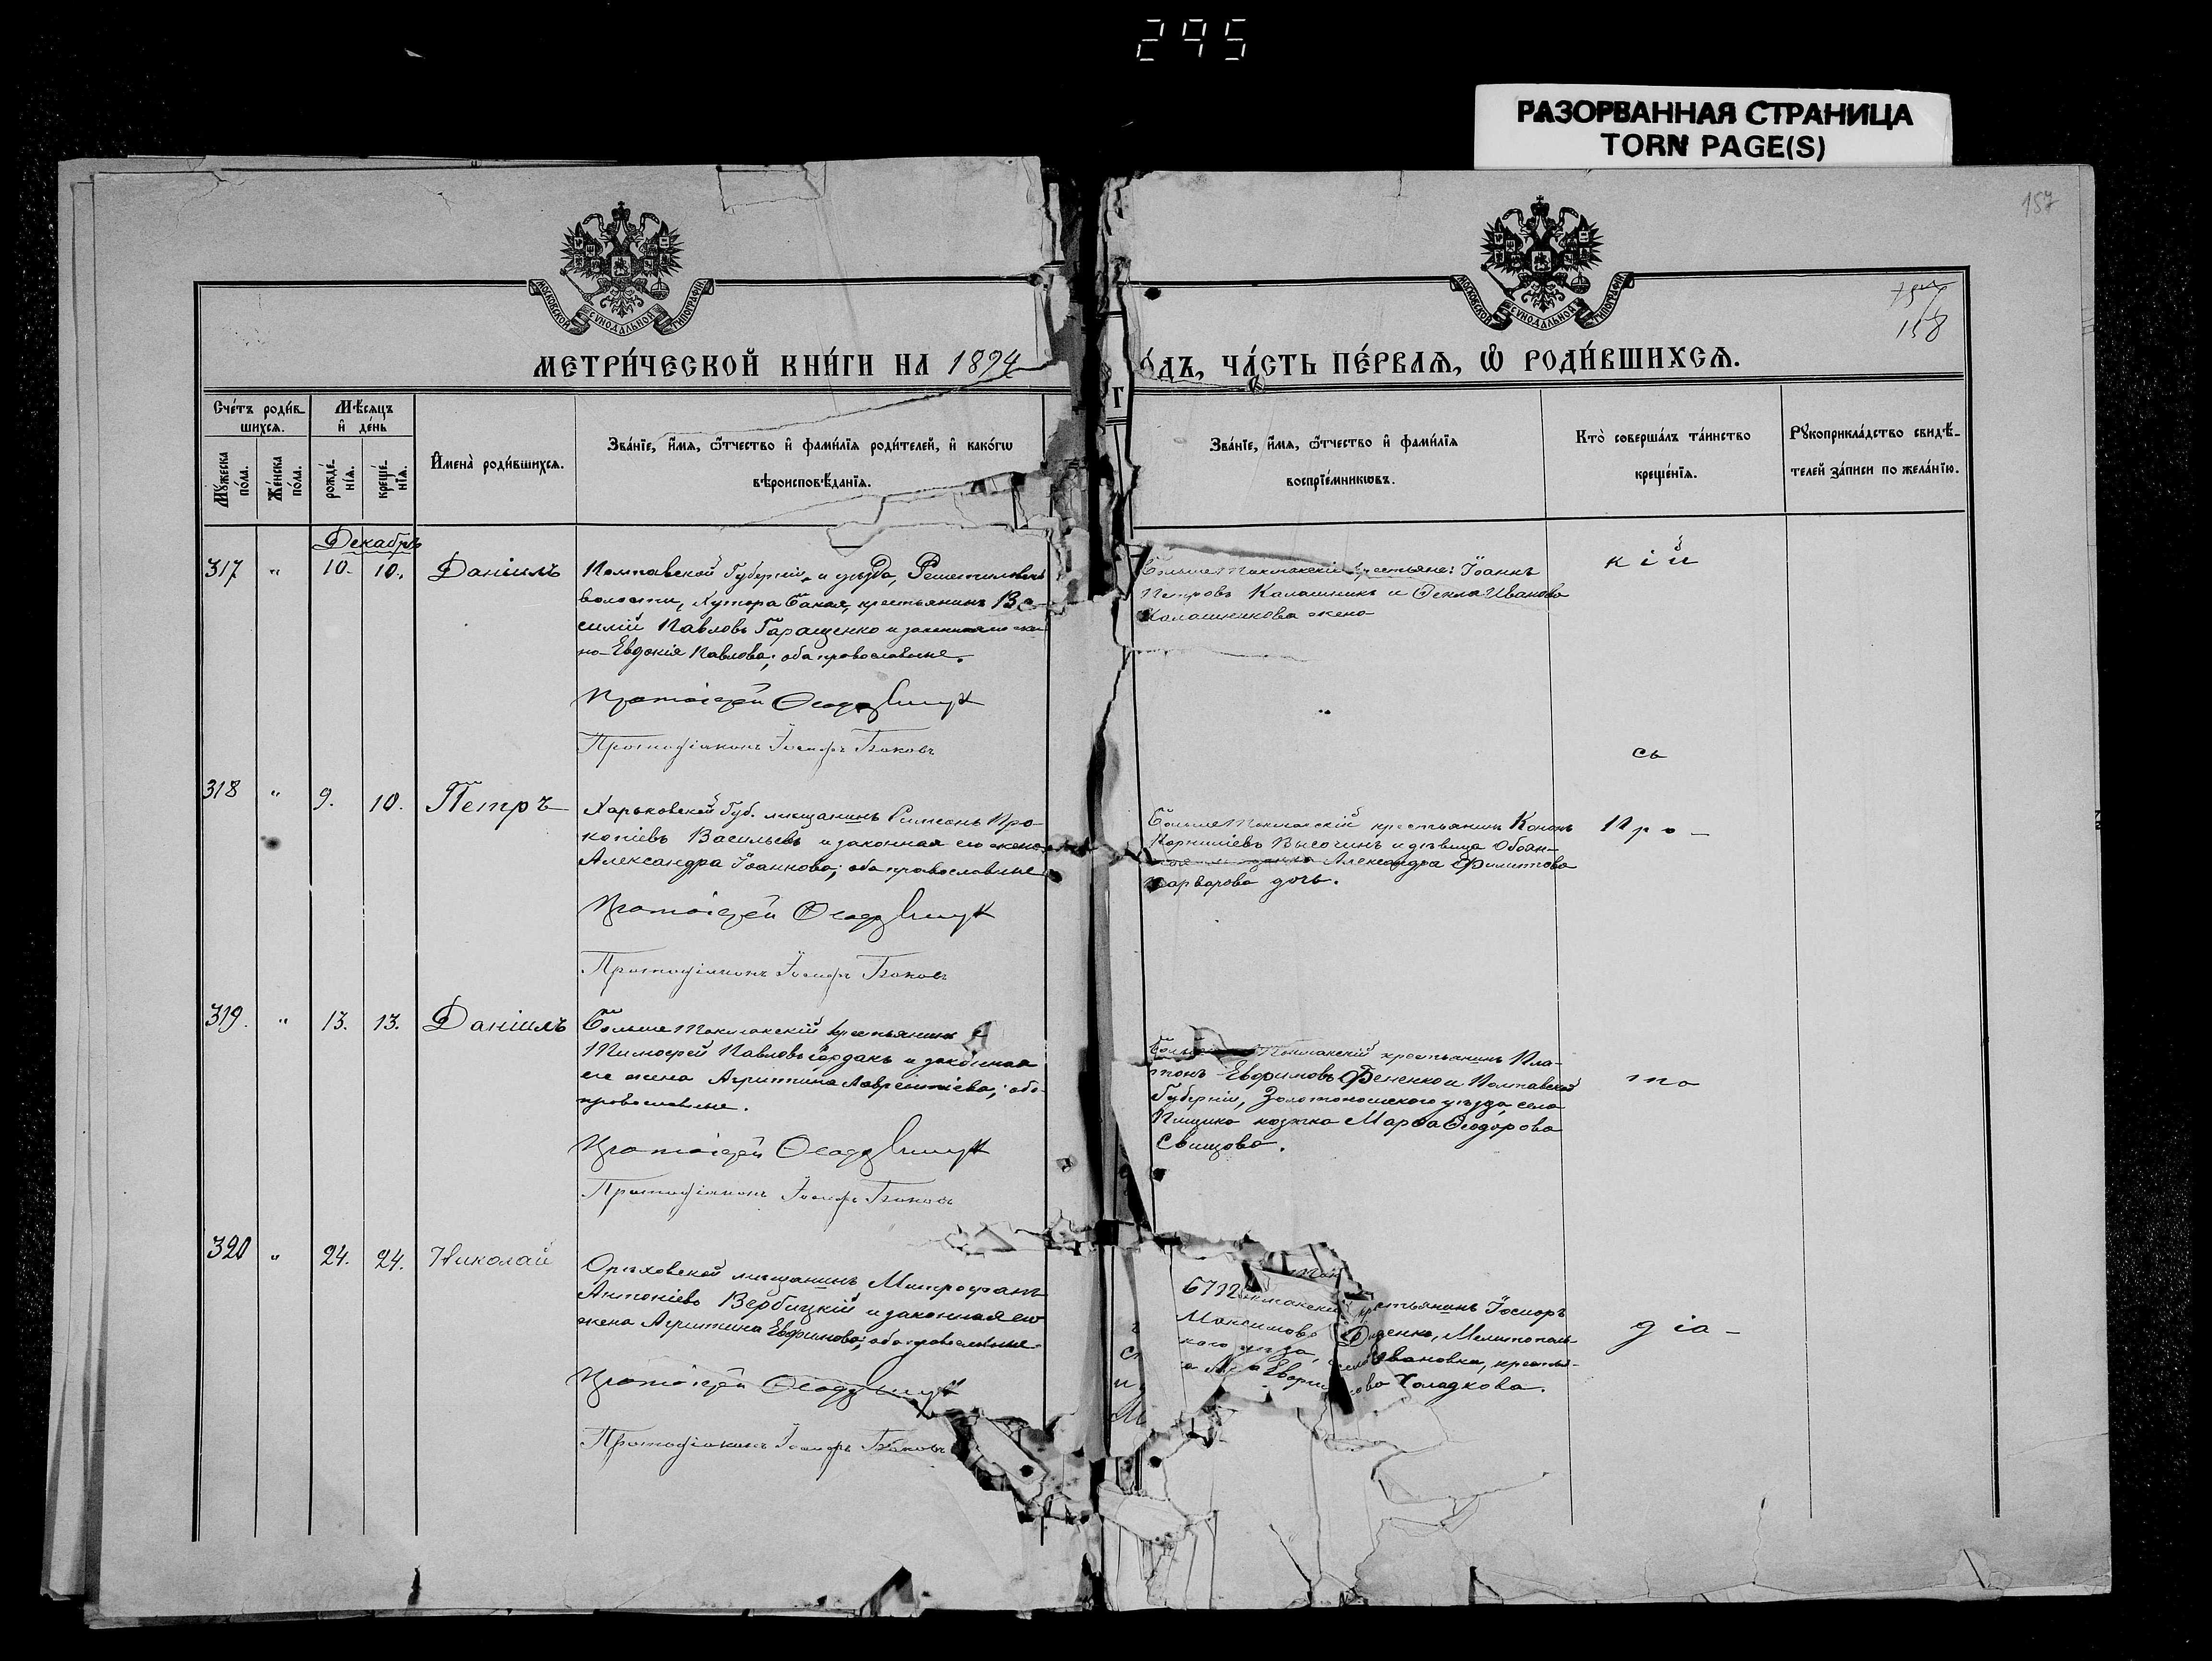 295
РАЗОРВАННАЯ СТРАНИЦА
TORN PAGE(S)
157
158
МОСКОВСКОЙ СѴНОДАЛЬНОЙ ТИПОГРАФІИ
МОСКОВСКОЙ СѴНОДАЛЬНОЙ ТИПОГРАФІИ
МЕТРИ́ЧЕСКОЙ КНИ́ГИ НА 1894
ГО́ДЪ, ЧА́СТЬ ПЕ́РВАѦ, Ѡ РОДИ́ВШИХСѦ.
Сче́тъ роди́в-
шихсѧ.
Мꙋ́жеска по́ла.
Же́нска по́ла.
Мѣ́сѧцъ
и҆ де́нь
рожде́-
нїѧ.
креще́-
нїѧ.
И҆мена̀ роди́вшихсѧ.
Зва́нїе, и҆́мѧ, ѻ҆́тчество и҆ фами́лїѧ роди́телей, и҆ како́гѡ
вѣроисповѣ́данїѧ.
Зва́нїе, и҆́мѧ, ѻ҆́тчество и҆ фами́лїѧ
воспрїе́мникѡвъ.
Кто̀ соверша́лъ та́инство
креще́нїѧ.
Рꙋкоприкла́дство свидѣ́-
телей за́писи по жела́нїю.
Декабрь
317 " 10. 10. Даніилъ
Полтавской Губерніи и уѣзда, Решетиловской
волости, хутора Бакая, крестьянинъ Ва-
силій Павловъ Гаращенко и законная его же-
на Евдокія Павлова; оба православные.
Протоіерей
Протодіаконъ Іосифъ Баковъ
Больше Токмакскіе крестьяне: Іоаннъ
Петровъ Калашникъ и Ѳекла Иванова
Калашникова жена
кій
сь
318 " 9. 10. Петръ
Харьковской Губ. мѣщанинъ Симеонъ Про-
копіевъ Васильевъ и законная его жена
Александра Іоаннова; оба православные
Протоіерей
Протодіаконъ Іосифъ Баковъ
Больше Токмакскій крестьянинъ Кононъ
Корниліевъ Высочинъ и дѣвица Обоян-
Александра Филиппова
дочь.
Про-
319. " 13. 13. Даніилъ
Больше Токмакскій крестьянинъ
Тимофей Павловъ и законная
его жена Агриппина Лаврентіева; оба
православные.
Протоіерей
Протодіаконъ Іосифъ Баковъ
Токмакскій крестьянинъ Пла-
тонъ Евфимовъ Фененко и Полтавской
Губерніи, Золотоношскаго уѣзда, села
козачка Марѳа Ѳеодорова
Свищова.
то
320 " 24. 24. Николай
Орѣховской мѣщанинъ Митрофанъ
Антоніевъ Вербицкій и законная его
жена Агриппина Евфимова; оба православные.
Протоіерей
Протодіаконъ Іосифъ Баковъ
крестьянинъ Іосифъ
Максимовъ Мелитополь-
Ивановка, крестья-
Холадкова.
діа-